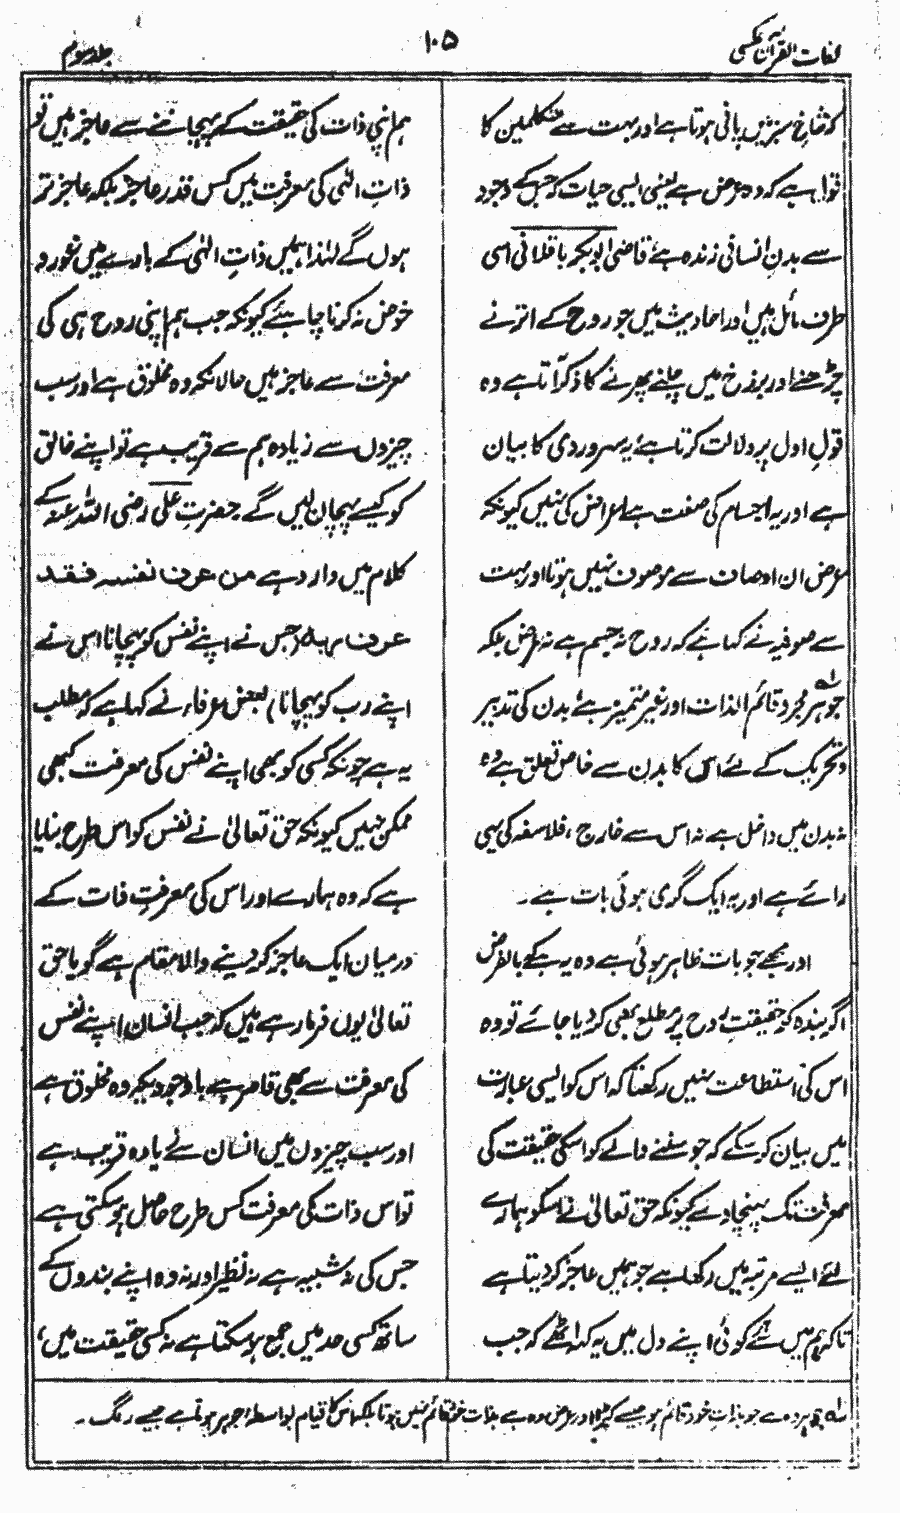 لغات القرآن عکسی
۱۰۵
جلد سوم
کہ شاخ سبز میں پانی ہوتا ہے اور بہت سے متکلمین کا
قول ہے کہ وہ عرض ہے یعنی ایسی حیات کہ جس کے وجود
سے بدنِ انسانی زندہ ہے، قاضی ابوبکر باقلانی اسی
طرف مائل ہیں اور احادیث میں جو روح کے اترنے
چڑھنے اور برزخ میں چلنے پھرنے کا ذکر آتا ہے وہ
قولِ اول پر دلالت کرتا ہے، یہ سہروردی کا بیان
ہے اور یہ اجسام کی صفت ہے اعراض کی نہیں کیونکہ
عرض ان اوصاف سے موصوف نہیں ہوتا اور بہت
سے صوفیہ نے کہا ہے کہ روح نہ جسم ہے نہ عرض بلکہ
جوہر مجرد قائم الذات اور غیر متمیز ہے، بدن کی تدبیر
و تحریک کے لئے اس کا بدن سے خاص تعلق ہے وہ
نہ بدن میں داخل ہے نہ اس سے خارج، فلاسفہ کی یہی
رائے ہے اور یہ ایک گری ہوئی بات ہے۔
اور مجھے جو بات ظاہر ہوئی ہے وہ یہ ہے کہ بالفرض
اگر بندہ کو حقیقتِ روح پر مطلع بھی کر دیا جائے تو وہ
اس کی استطاعت نہیں رکھتا کہ اس کو ایسی عبارت
میں بیان کر سکے کہ جو سننے والے کو اسکی حقیقت کی
معرفت تک پہنچا دے کیونکہ حق تعالیٰ نے اسکو ہمارے
لئے ایسے مرتبہ میں رکھا ہے جو ہمیں عاجز کر دیتا ہے
تاکہ ہم میں سے کوئی اپنے دل میں یہ کہہ اٹھے کہ جب
ہم اپنی ذات کی حقیقت کے پہچاننے سے عاجز ہیں تو
ذاتِ الٰہی کی معرفت میں کس قدر عاجز بلکہ عاجز تر
ہوں گے لہٰذا ہمیں ذاتِ الٰہی کے بارے میں غور و
خوض نہ کرنا چاہئے کیونکہ جب ہم اپنی روح ہی کی
معرفت سے عاجز ہیں حالانکہ وہ مخلوق ہے اور سب
چیزوں سے زیادہ ہم سے قریب ہے تو اپنے خالق
کو کیسے پہچان لیں گے حضرتِ علی رضی اللہ عنہ کے
کلام میں وارد ہے من عرف نفسہ فقد
عرف ربہ (جس نے اپنے نفس کو پہچانا اس نے
اپنے رب کو پہچانا) بعض عرفاء نے کہا ہے کہ مطلب
یہ ہے چونکہ کسی کو بھی اپنے نفس کی معرفت کبھی
ممکن نہیں کیونکہ حق تعالیٰ نے نفس کو اس طرح بنایا
ہے کہ وہ ہمارے اور اس کی معرفتِ ذات کے
درمیان ایک عاجز کر دینے والا مقام ہے گویا حق
تعالیٰ یوں فرما رہے ہیں کہ جب انسان اپنے نفس
کی معرفت سے بھی قاصر ہے باوجودیکہ وہ مخلوق ہے
اور سب چیزوں میں انسان سے زیادہ قریب ہے
تو اس ذات کی معرفت کس طرح حاصل ہو سکتی ہے
جس کی نہ شبیہ ہے نہ نظیر اور نہ وہ اپنے بندوں کے
ساتھ کسی حد میں جمع ہو سکتا ہے نہ کسی حقیقت میں،
لہ جوہر وہ ہے جو بذاتِ خود قائم ہو جیسے کپڑا اور عرض وہ ہے بذات خود قائم نہیں ہوتا بلکہ اس کا قیام بواسطہ جوہر ہوتا ہے جیسے رنگ۔